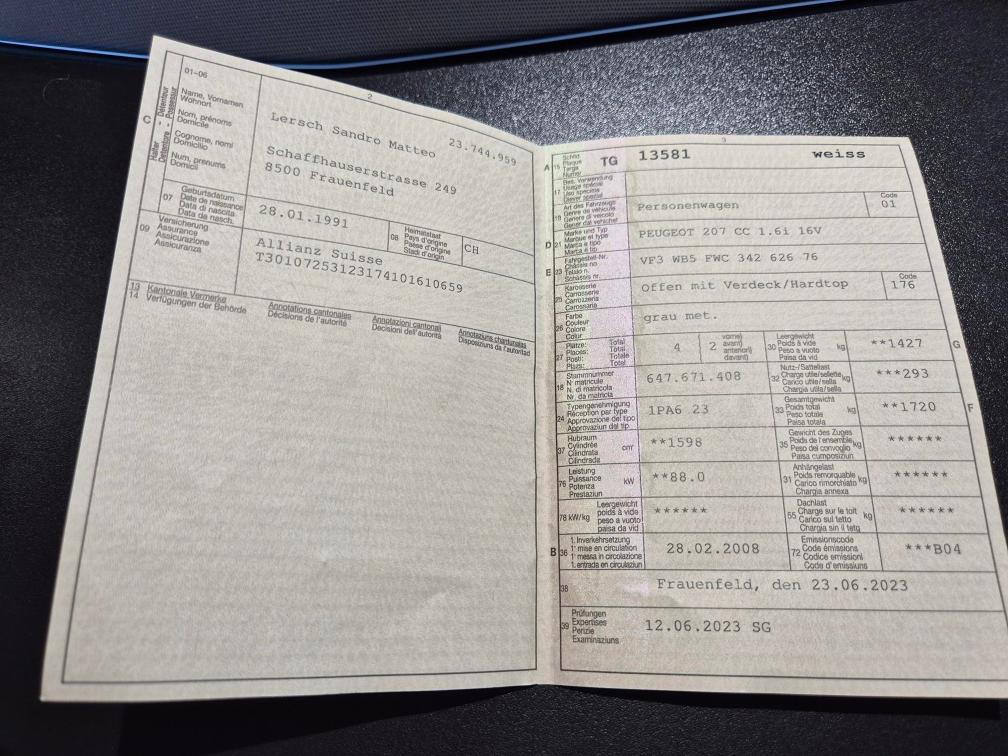 2
01-06
C
Halter
Détenteur
Detentore
Possessur
Name, Vornamen
Wohnort
Nom, prénoms
Domicile
Cognome, nomi
Domicilio
Num, prenums
Domicil
Lersch Sandro Matteo 23.744.959
Schaffhauserstrasse 249
8500 Frauenfeld
07
Geburtsdatum
Date de naissance
Data di nascita
Data da nasch.
28.01.1991
08
Heimatstaat
Pays d'origine
Paese d'origine
Stadi d'origin
CH
09
Versicherung
Assurance
Assicurazione
Assicuranza
Allianz Suisse
T30107253123174101610659
13 Kantonale Vermerke
14 Verfügungen der Behörde
Annotations cantonales
Décisions de l'autorité
Annotazioni cantonali
Decisioni dell'autorità
Annotaziuns chantunalas
Disposiziuns da l'autoritad
3
A 15
Schild
Plaque
Targa
Numer
TG 13581 weiss
17
Bes. Verwendung
Usage spécial
Uso speciale
Diever spezial
19
Art des Fahrzeugs
Genre de véhicule
Genere di veicolo
Gener dal vehichel
Personenwagen
Code
01
D 21
Marke und Typ
Marque et type
Marca e tipo
Marca e tip
PEUGEOT 207 CC 1.6i 16V
E 23
Fahrgestell-Nr.
Châssis no
Telaio n.
Schassis nr.
VF3 WB5 FWC 342 626 76
25
Karosserie
Carrosserie
Carrozzeria
Carossaria
Offen mit Verdeck/Hardtop
Code
176
26
Farbe
Couleur
Colore
Colur
grau met.
27
Plätze: Total
Places: Total
Posti: Totale
Plazs: Total
4
2
vorne)
avant)
anteriori)
davant)
30
Leergewicht
Poids à vide
Peso a vuoto
Paisa da vid
kg
**1427
G
18
Stammnummer
N° matricule
N. di matricola
Nr. da matricla
647.671.408
32
Nutz-/Sattellast
Charge utile/sellette
Carico utile/sella
Chargia utila/sella
kg
***293
24
Typengenehmigung
Réception par type
Approvazione del tipo
Approvaziun dal tip
1PA6 23
33
Gesamtgewicht
Poids total
Peso totale
Paisa totala
kg
**1720
F
37
Hubraum
Cylindrée
Cilindrata
Cilindrada
cm³
**1598
35
Gewicht des Zuges
Poids de l'ensemble
Peso del convoglio
Paisa cumposiziun
kg
******
76
Leistung
Puissance
Potenza
Prestaziun
kW
**88.0
31
Anhängelast
Poids remorquable
Carico rimorchiato
Chargia annexa
kg
******
78 kW/kg
Leergewicht
poids à vide
peso a vuoto
paisa da vid
******
55
Dachlast
Charge sur le toit
Carico sul tetto
Chargia sin il tetg
kg
******
B 36
1. Inverkehrsetzung
1re mise en circulation
1a messa in circolazione
1. entrada en circulaziun
28.02.2008
72
Emissionscode
Code émissions
Codice emissioni
Code d'emissiuns
***B04
38
Frauenfeld, den 23.06.2023
39
Prüfungen
Expertises
Perizie
Examinaziuns
12.06.2023 SG